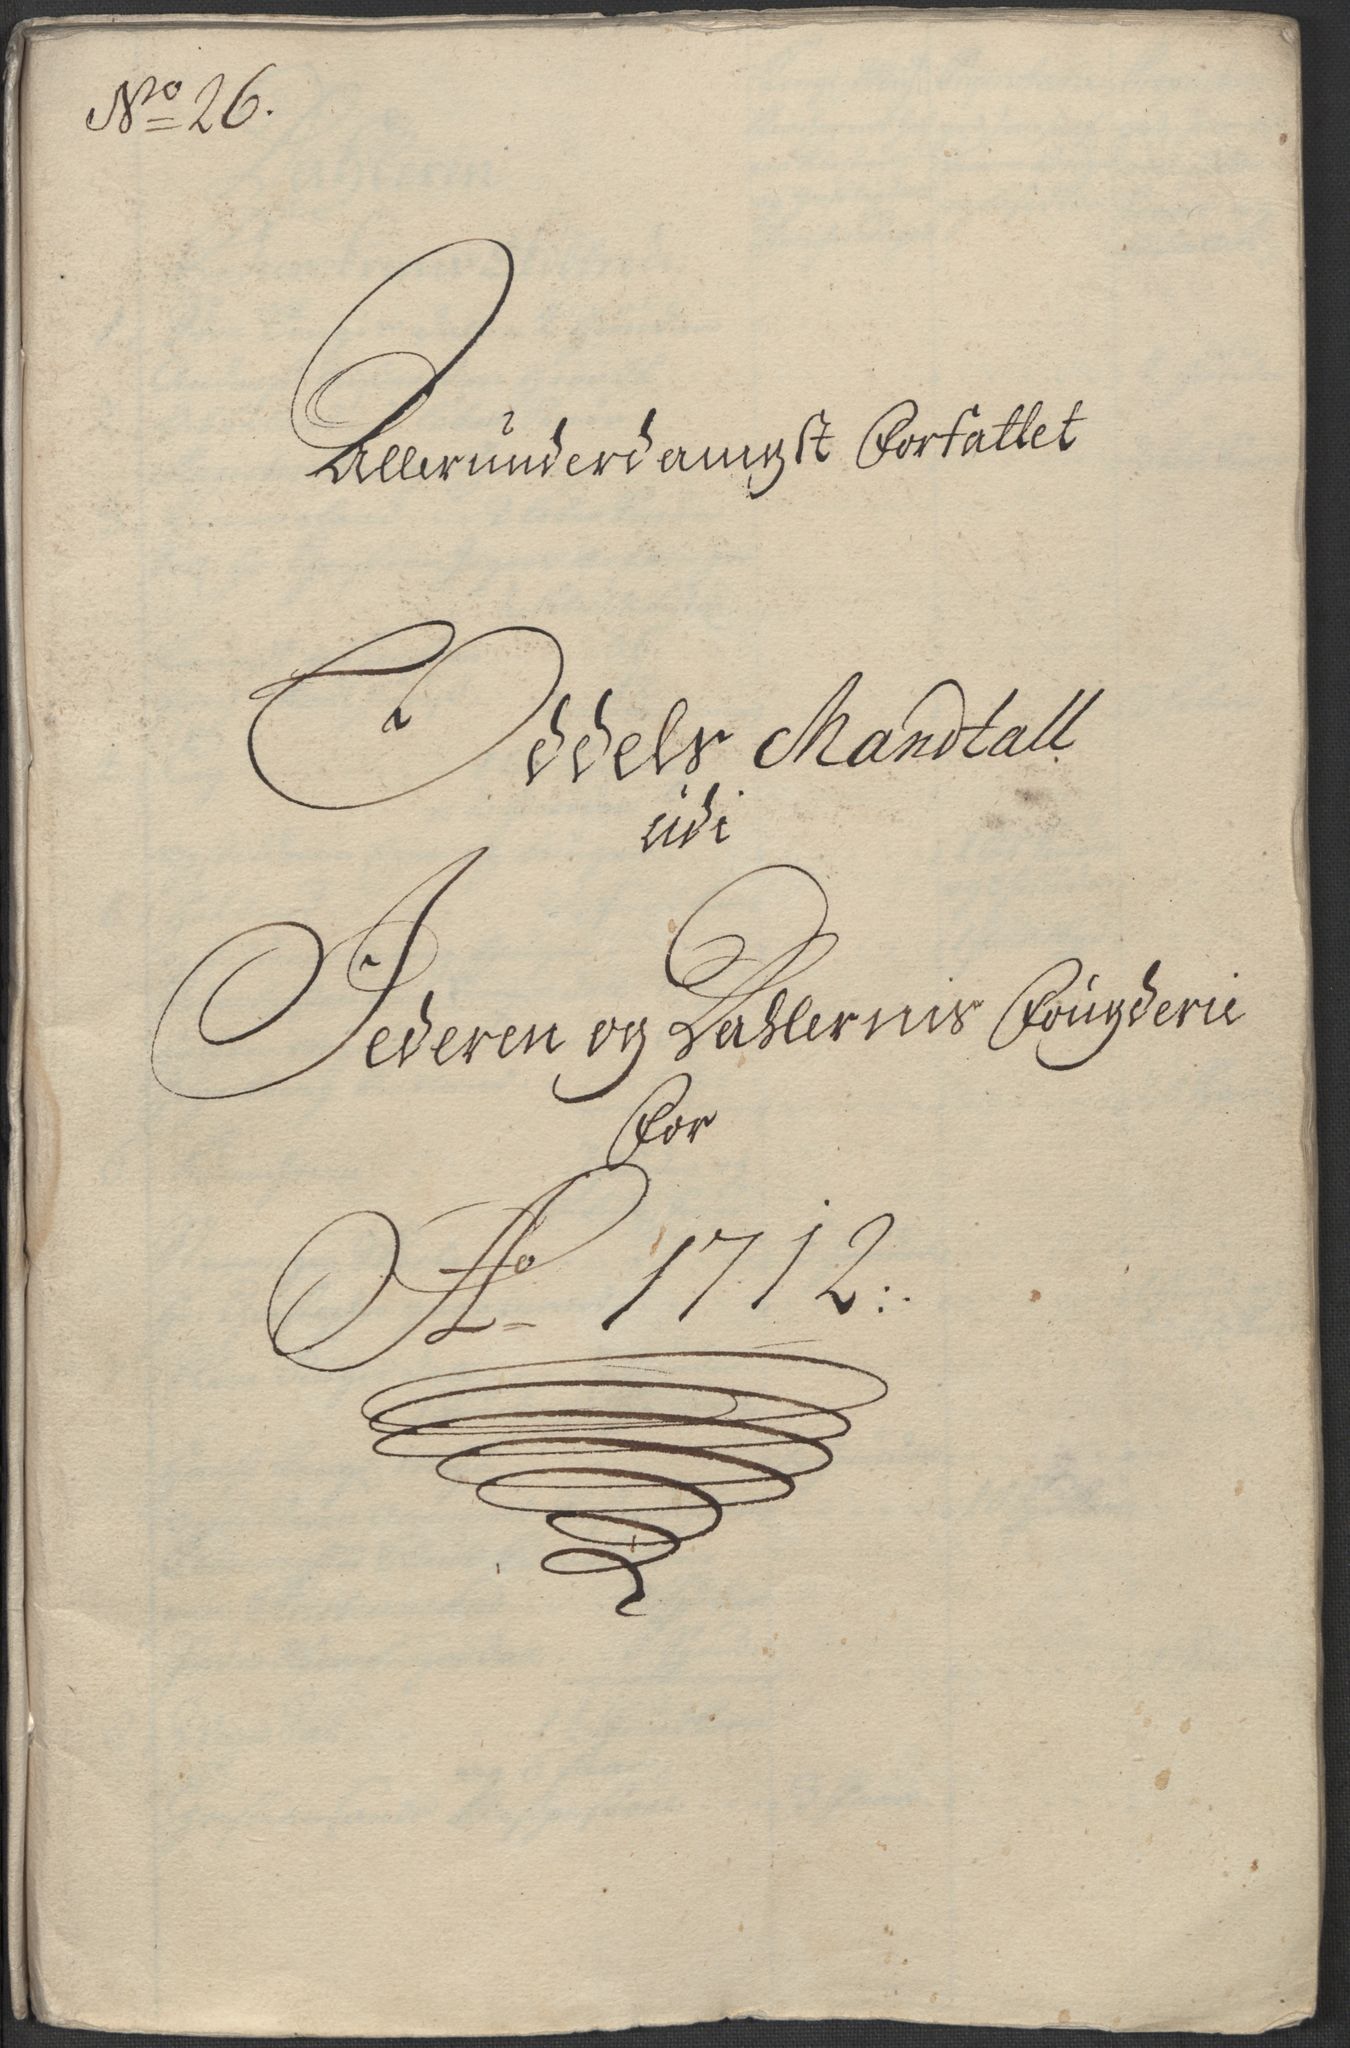 No 26.
Allerunderdanigst Forfattet
Oddels Mandtall
udi
Jederen og Dahlernis Fougderie
For
Ao 1712:.